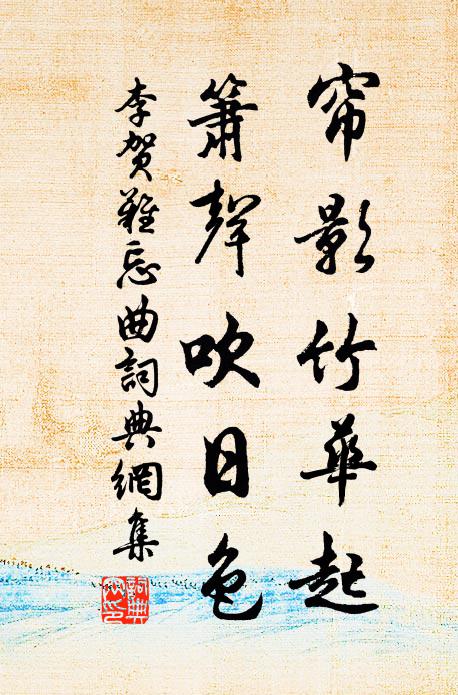 帘影竹華起
簫聲吹日色
李賀難忘曲詞典網集